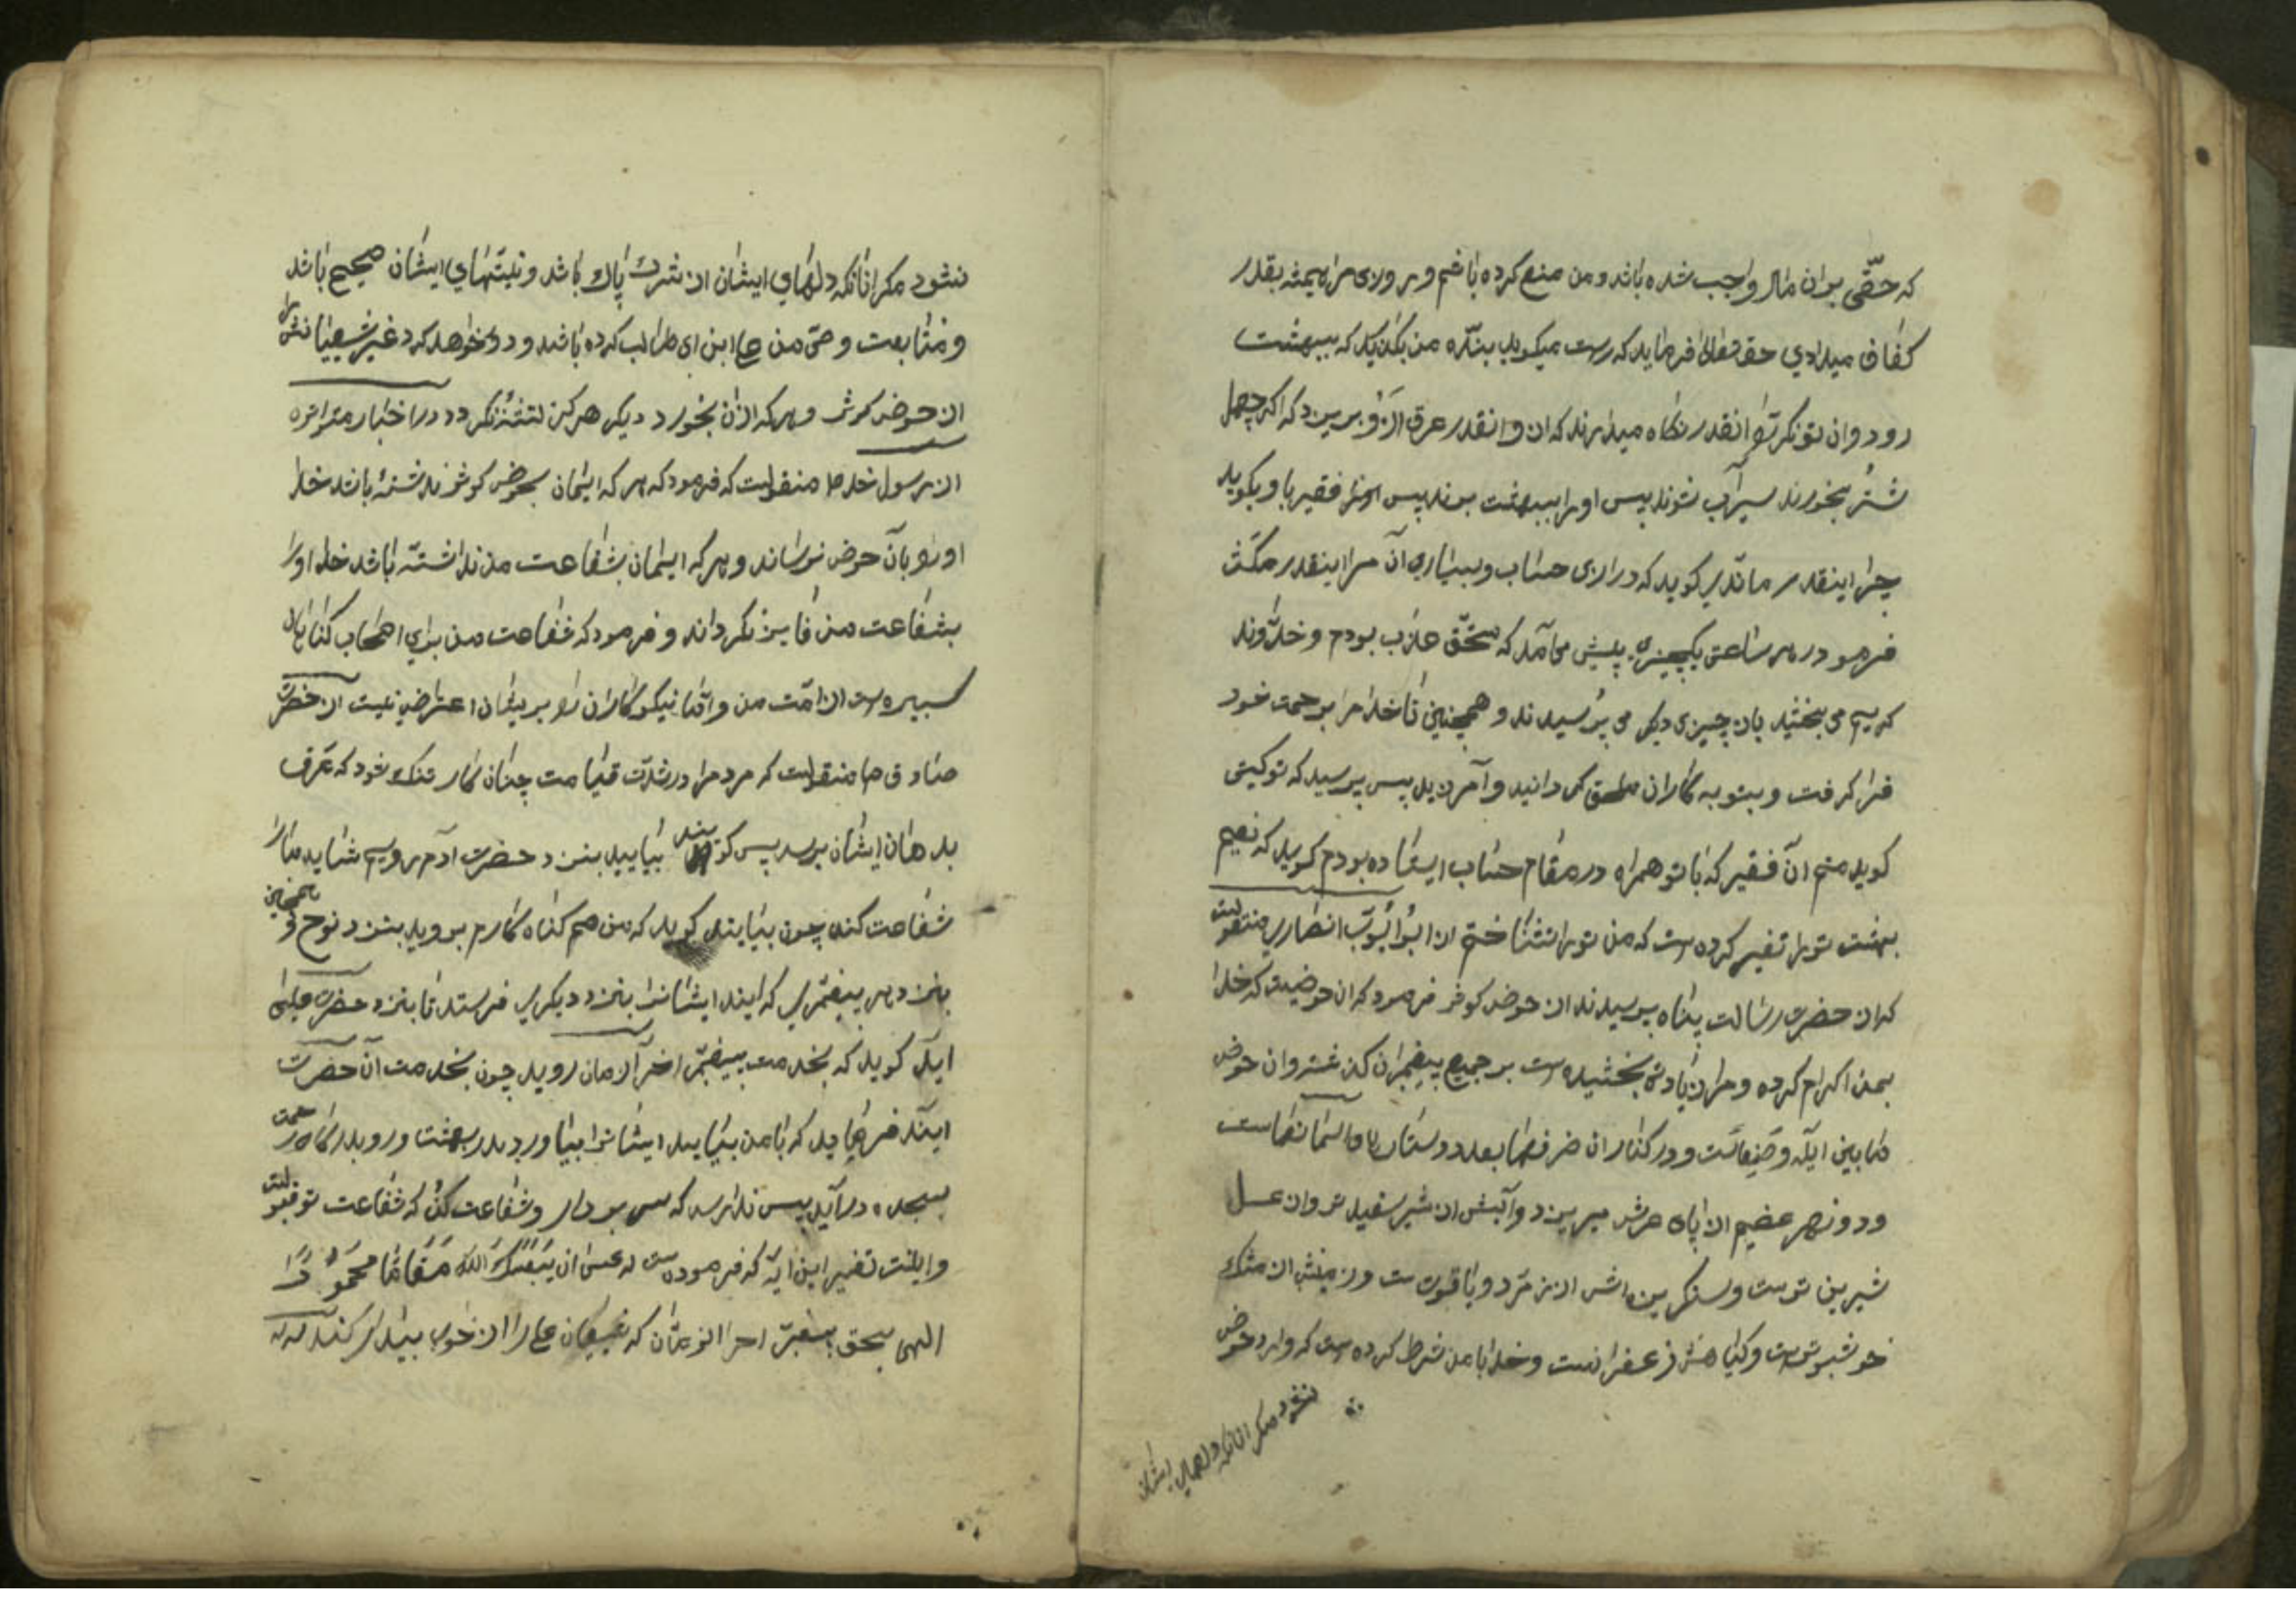 که حقّی بران مال واجب شده باشد و من منع کرده باشم و روزی مرا همیشه بقدر
کفاف میدادی حقتعالی فرماید که راست میکوید بنده من بکذارید که ببهشت
رود و ان تونکر را انقدر نکاه میدارند که از او انقدر عرق بریزد که اکر چهل
شتر بخورند سیرآب شوند پس او را ببهشت برند پس فقیر باو بکوید
چرا اینقدر ماندی کوید که درازی حساب و بسیاری آن مرا اینقدر مکث
فرمود در هر ساعتی یکچیزی پیش می آمد که مستحّق عذاب بودم و خداوند
کریم می بخشید باز چیزی دیکر می پرسیدند و همچنین تا خدا مرا برحمت خود
فرا کرفت و بتوبه کاران ملحق کردانید و آمرزید پس پرسید که تو کیستی
کوید منم آن فقیر که با تو همراه در مقام حساب ایستاده بودم کوید که نعیم
بهشت تو را تغییر کرده است که من تو را نشناختم از ابو ایّوب انصاری منقولست
که از حضرت رسالت پناه پرسیدند از حوض کوثر فرمود که ان حوضیست که خدا
بمن اکرام کرده و مرا زیادتی بخشیده است بر جمیع پیغمبران کذشته و ان حوض
مابین ایله و صنعاست و در کنار ان ظرفها بعدد ستارهای آسمانهاست
و دو نهر عضیم از پای عرش میریزد و آبش از شیر سفیدتر و از عسل
شیرین تر است و سنکریزه اش از زمرّد و یاقوت است و زمینش از مشک
خوشبوتر است و کیاهش زعفرانست و خدا با من شرط کرده است که وارد حوض
نشود مکر انانکه دلهای ایشان
نشود مکر انانکه دلهای ایشان از شرک پاک باشد و نیّتهای ایشان صحیح باشد
و متابعت وصّی من علی ابن ابی طالب کرده باشند و دور خواهد کرد غیر شیعیانش را
از حوض کوثر و هر که از ان بخورد دیکر هرکز تشنه نکردد در اخبار متواتره
از رسول خدا ص منقولست که فرمود که هر که ایمان بحوض کوثر نداشته باشد خدا
او را بآن حوض نرساند و هر که ایمان بشفاعت من نداشته باشد خدا او را
بشفاعت من فایز نکرداند و فرمود که شفاعت من برای اصحاب کناهان
کبیره است از امّت من و امّا نیکوکاران را بر ایشان اعتراضی نیست از حضرت
صادق ع منقولست که مردم را در شدّت قیامت چنان کار تنک شود که عرق
بدهان ایشان برسد پس کویند بیایید بنزد حضرت آدم رویم شاید ما را
شفاعت کند چون بیایند کوید که من هم کناه کارم بروید بنزد نوح و همچنین
بنزد هر پیغمبری که ایند ایشانرا بنزد دیکری فرستد تا بنزد حضرت عیسی
ایند کوید که بخدمت پیغمبر اخر آلزمان روید چون بخدمت آن حضرت
ایند فرماید که با من بیایید ایشانرا بیاورد بدر بهشت و رو بدرکاه رحمت
بسجده درآید پس ندا رسد که سر بردار و شفاعت کن که شفاعت تو قبولست
و اینست تفسیر این ایّه که فرموده است که عسی ان یَبْعَثَکَ رَبُّکَ مَقَامًا مَحْمُوْدًا
الهی بحق پیغمبر اخر الزمان که شیعیان علی را از خواب بیدار کند